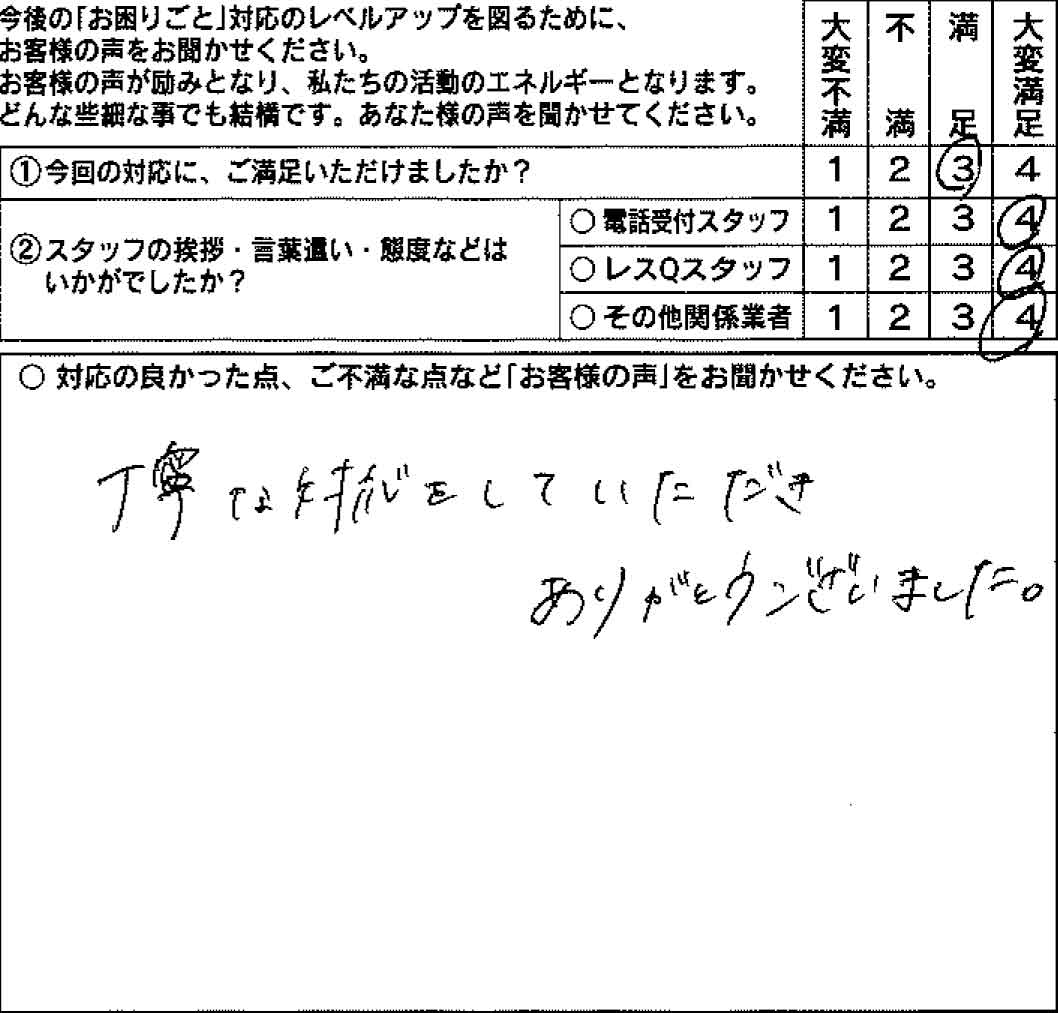 今後の「お困りごと」対応のレベルアップを図るために、
お客様の声をお聞かせください。
お客様の声が励みとなり、私たちの活動のエネルギーとなります。
どんな些細な事でも結構です。あなた様の声を聞かせてください。
大変不満 不満 満足 大変満足
①今回の対応に、ご満足いただけましたか? 1 2 3 4
②スタッフの挨拶・言葉遣い・態度などは
いかがでしたか?
○電話受付スタッフ 1 2 3 4
○レスQスタッフ 1 2 3 4
○その他関係業者 1 2 3 4
○ 対応の良かった点、ご不満な点など「お客様の声」をお聞かせください。
丁寧な対応をしていただき
ありがとうございました。